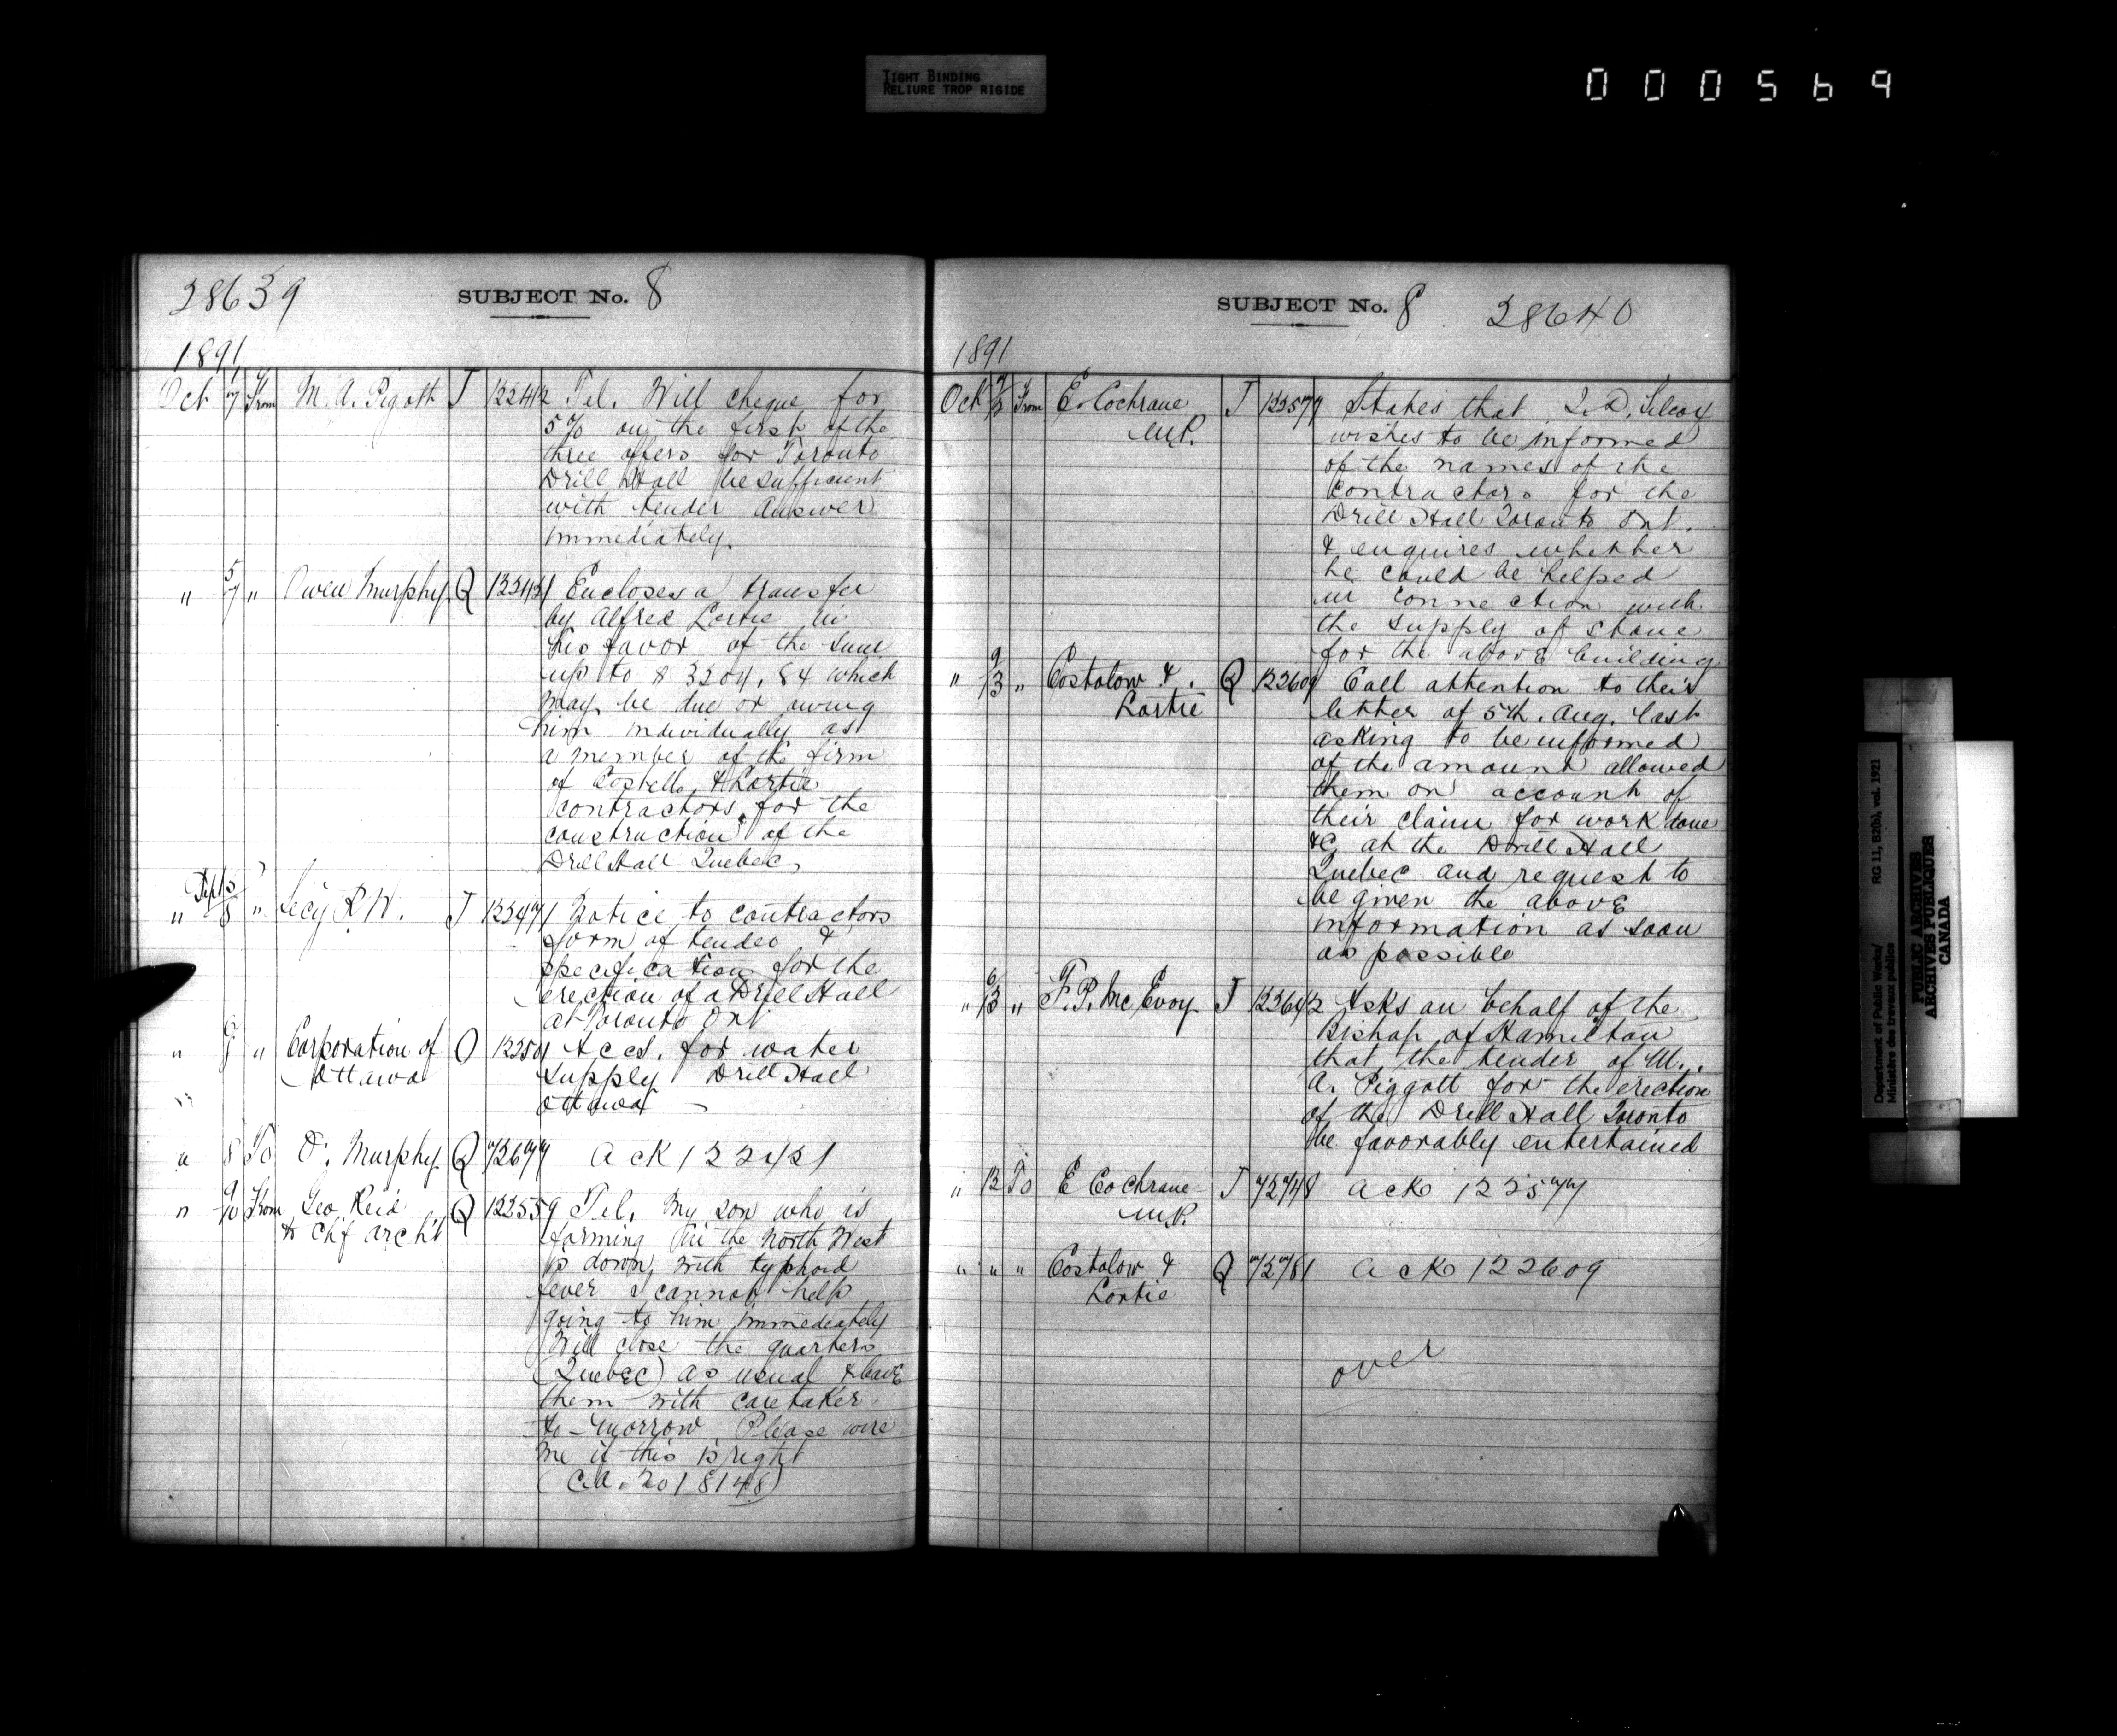 TIGHT BINDING
RELIURE TROP RIGIDE
000569
28639 SUBJECT No. 8
1891
Oct 7 From M. A. Pigott T 122412 Tel. Will cheque for
5% on the first of the
three offers for Toronto
Drill Hall be sufficient
with tender Answer
immediately.
" 5/7 " Owen Murphy Q 122421 Encloses a transfer
by Alfred Lortie in
his favor of the sum
up to $3204.84 which
may be due or owing
him individually as
a member of the firm
of Costello & Lortie
contractors for the
construction of the
Drill Hall Quebec,
" Sept 12/8 " Lecy R. W. T 122471 Notice to contractors
form of tender &
specification for the
erection of a Drill Hall
at Toronto Ont
" " Corporation of O 12250 Accs. for water
Ottawa supply Drill Hall
Ottawa —
" 8 To O. Murphy Q 72677 Ack 122421
" 9/10 From Geo. Reid Q 122559 Tel. My son who is
& Chf archt farming in the North West
is down with typhoid
fever I cannot help
going to him immediately
Will close the quarters
(Quebec) as usual & leave
them with caretaker
to-morrow. Please wire
me if this is right
(C.A. 2018148)
SUBJECT No. 8 28640
1891
Oct 9/12 From E. Cochrane T 122577 States that
M.P. wishes to be informed
of the names of the
contractors for the
Drill Hall Toronto Ont.
& enquires whether
he could be helped
in connection with
the supply of stone
for the above building
" 9/13 " Costolow & Q 122609 Call attention to their
Lortie letter of 5th. Aug. last
asking to be informed
of the amount allowed
them on account of
their claim for work done
&c at the Drill Hall
Quebec and request to
be given the above
information as soon
as possible
" 6/13 " F. P. McEvoy T 122642 Asks on behalf of the
Bishop of Hamilton
that the tender of M.
A. Piggott for the erection
of the Drill Hall Toronto
be favorably entertained
" 12 To E Cochrane T 72748 Ack 122577
M.P.
" " " Costolow & Q 72781 Ack 122609
Lortie
over
Department of Public Works/ RG 11, B2(b), vol. 1921
Ministère des travaux publics
PUBLIC ARCHIVES
ARCHIVES PUBLIQUES
CANADA